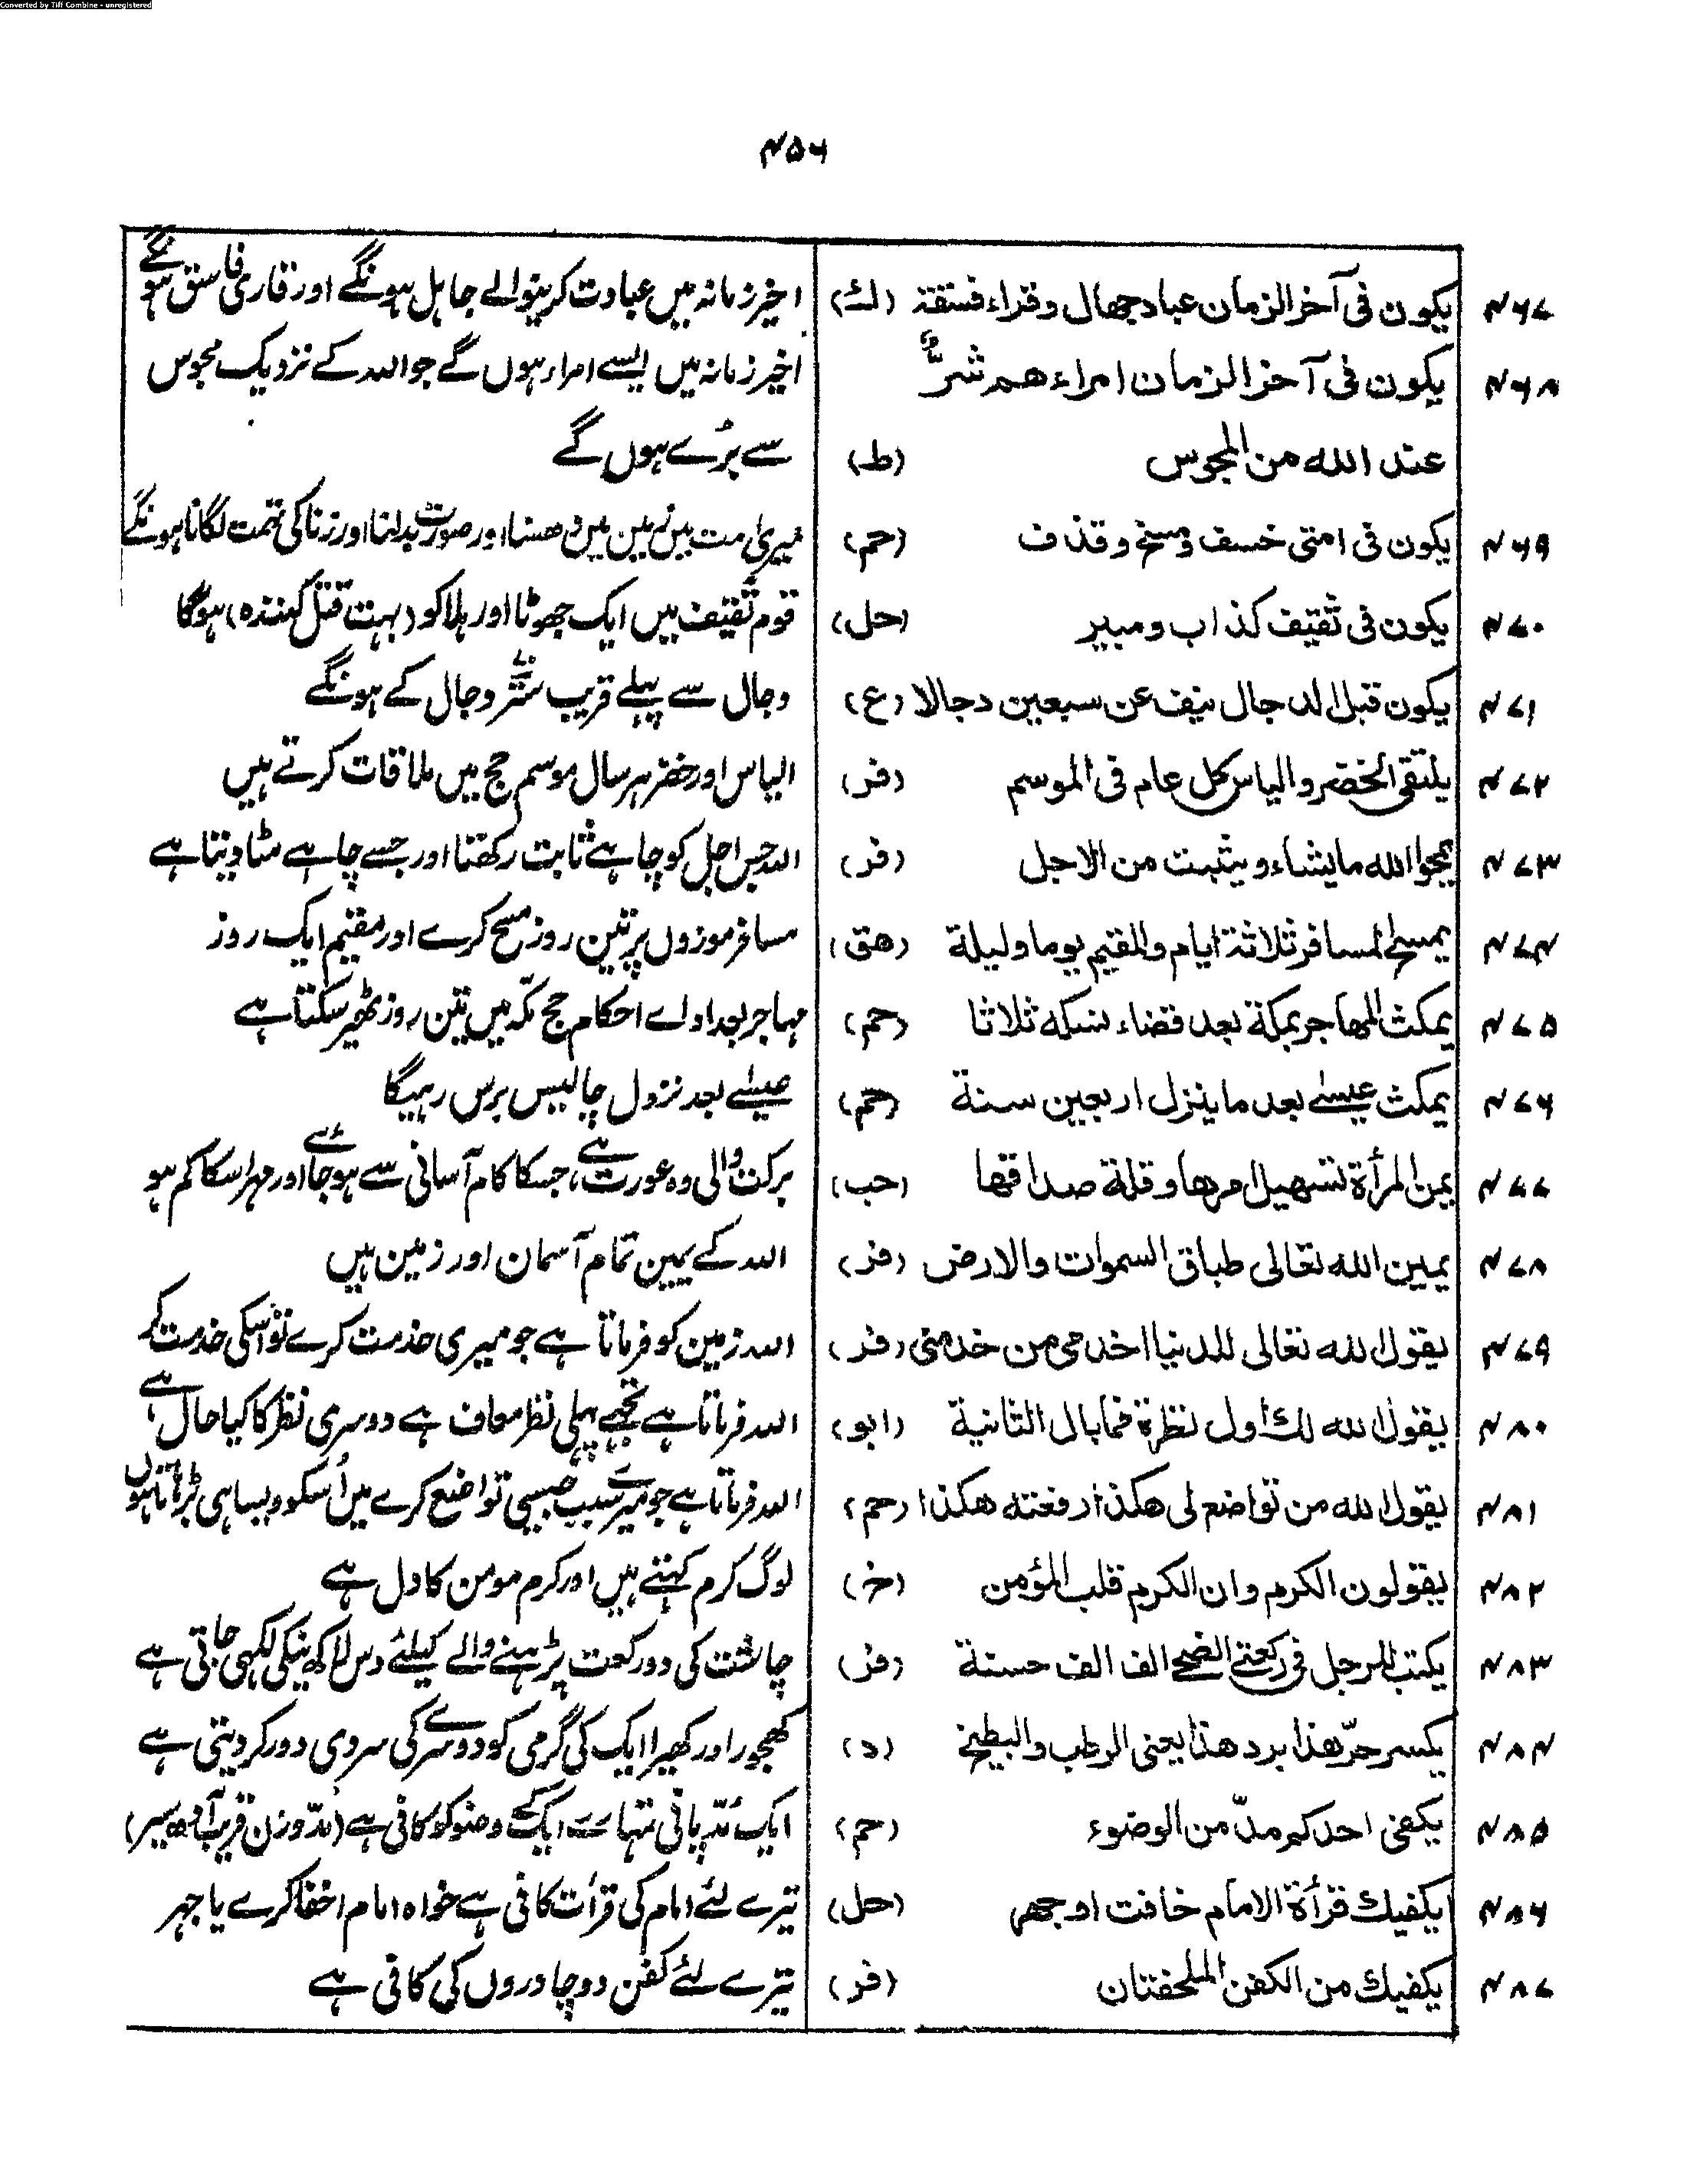 Converted by Tiff Combine - unregistered
۴۵۶
۴۶۷ یکون فی آخر الزمان عباد جهال و قراء فسقة (ك) اخیر زمانہ میں عبادت کرینوالے جاہل ہونگے اور قاری فاسق ہونگے
۴۶۸ یکون فی آخر الزمان امراء هم شرٌّ اخیر زمانہ میں ایسے امراء ہوں گے جو اللہ کے نزدیک مجوس
عند الله من المجوس (ط) سے بُرے ہوں گے
۴۶۹ یکون فی امتی خسف و مسخ و قذف (حم) میری امت میں زمین میں دھسنا اور صورت بدلنا اور زنا کی تہمت لگانا ہونگے
۴۷۰ یکون فی ثقیف کذاب و مبیر (حل) قوم ثقیف میں ایک جھوٹا اور ہلاکو (بہت قتل کنندہ) ہوگا
۴۷۱ یکون قبل الدجال نیف عن سبعین دجالا (ع) دجال سے پہلے قریب ستّر دجال کے ہونگے
۴۷۲ یلتقی الخضر و الیاس کل عام فی الموسم (فر) الیاس اور خضر ہر سال موسم حج میں ملاقات کرتے ہیں
۴۷۳ یمحوا الله ما یشاء و یثبت من الاجل (فر) اللہ جس اجل کو چاہے ثابت رکھتا اور جسے چاہے مٹا دیتا ہے
۴۷۴ یمسح المسافر ثلاثة ایام والمقیم یوما ولیلة (هق) مسافر موزوں پر تین روز مسح کرے اور مقیم ایک روز
۴۷۵ یمکث المهاجر بمکة بعد قضاء نسکه ثلاثا (حم) مہاجر بعد ادائے احکام حج مکّہ میں تین روز ٹھیر سکتا ہے
۴۷۶ یمکث عیسے بعد ما ینزل اربعین سنة (حم) عیسے بعد نزول چالیس برس رہیگا
۴۷۷ یمن المرأة تسهیل امرها و قلة صداقها (حب) برکت والی وہ عورت ہے، جسکا کام آسانی سے ہو جائے اور مہر اسکا کم ہو
۴۷۸ یمین الله تعالی طباق السموات والارض (فر) اللہ کے یمین تمام آسمان اور زمین ہیں
۴۷۹ یقول الله تعالی للدنیا اخدمی من خدمنی (فر) اللہ زمین کو فرماتا ہے جو میری خدمت کرے تو اسکی خدمت کر
۴۸۰ یقول الله لك اول نظرة فما بال الثانیة (ابو) اللہ فرماتا ہے تجھے پہلی نظر معاف ہے دوسری نظر کا کیا حال ہے
۴۸۱ یقول الله من تواضع لی هکذا رفعته هکذا (حم) اللہ فرماتا ہے جو میرے سبب جیسی تواضع کرے میں اُسکو ویسا ہی بڑھاتا ہوں
۴۸۲ یقولون الکرم وان الکرم قلب المؤمن (خ) لوگ کرم کہتے ہیں اور کرم مومن کا دل ہے
۴۸۳ یکتب للرجل فی رکعتے الضحے الف الف حسنة (فر) چاشت کی دو رکعت پڑہنے والے کیلئے دس لاکھ نیکی لکھی جاتی ہے
۴۸۴ یکسر حرّ هذا برد هذا یعنی الرطب والبطیخ (د) کھجور اور کھیرا ایک کی گرمی کو دوسرے کی سردی دور کر دیتی ہے
۴۸۵ یکفی احدکم مدّ من الوضوء (حم) ایک مُدّ پانی تمہارے ایک کے وضو کو کافی ہے (مدّ وزن قریب آدھ سیر)
۴۸۶ یکفیك قرأة الامام خافت او جهر (حل) تیرے لئے امام کی قرأت کافی ہے خواہ امام اخفا کرے یا جہر
۴۸۷ یکفیك من الکفن الملحفتان (فر) تیرے لئے کفن دو چادروں کی کافی ہے